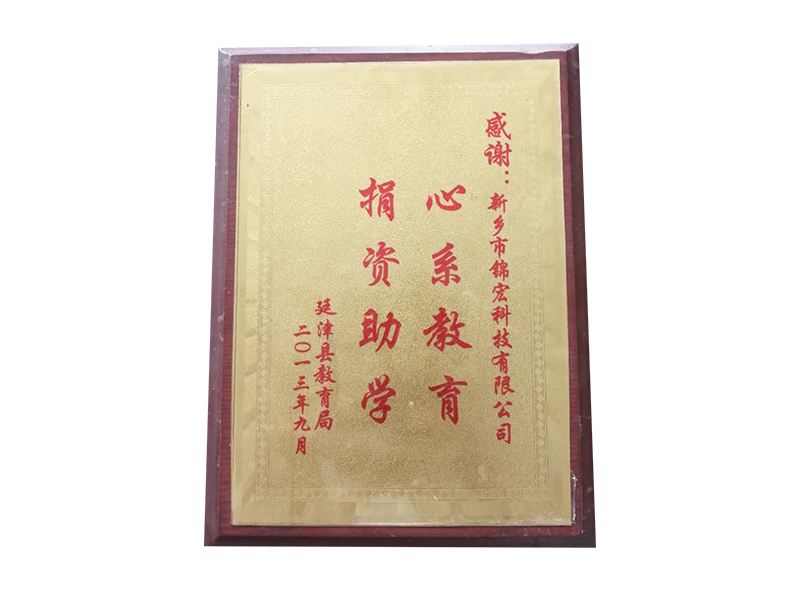 感谢：新乡市锦宏科技有限公司
心系教育
捐资助学
延津县教育局
二〇一三年九月